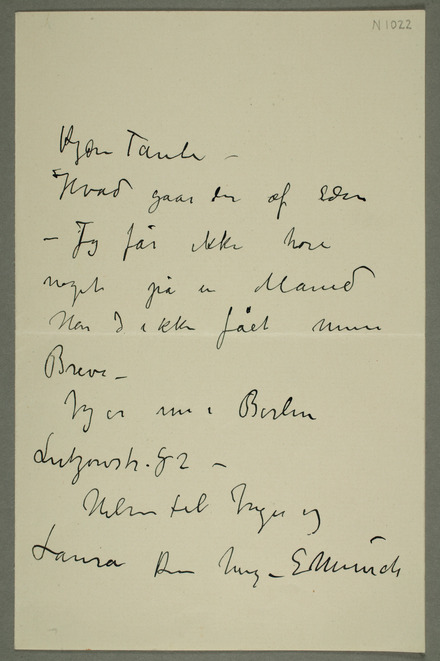 N 1022
Kjære Tante –
Hvad gaar der af Eder
– Jeg får ikke høre
noget på en Maaned
Har I ikke fået mine
Breve –
Jeg er nu i Berlin
Lützowstr. 82 –
Hilsen til Inger og
Laura Din heng – E Munch